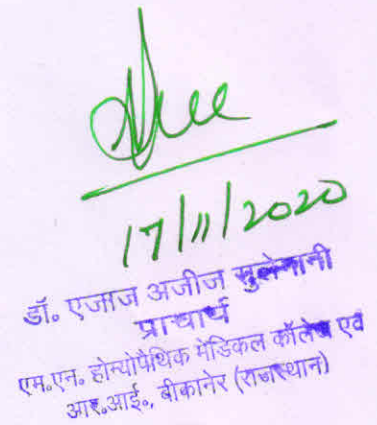 17/11/2020
डॉ. एजाज अजीज सुलेमानी
प्राचार्य
एम.एन. होम्योपैथिक मेडिकल कॉलेज एवं
आर.आई., बीकानेर (राजस्थान)